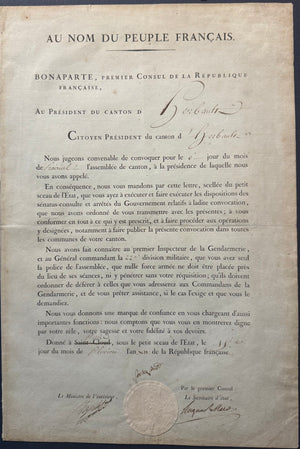 AU NOM DU PEUPLE FRANÇAIS.
BONAPARTE, PREMIER CONSUL DE LA RÉPUBLIQUE
FRANÇAISE,
AU PRÉSIDENT DU CANTON D'Herbault
CITOYEN PRÉSIDENT du canton d'Herbault
Nous jugeons convenable de convoquer pour le jour du mois
de l'assemblée de canton, à la présidence de laquelle nous
vous avons appelé.
En conséquence, nous vous mandons par cette lettre, scellée du petit
sceau de l'État, que vous ayez à exécuter et faire exécuter les dispositions des
sénatus-consulte et arrêtés du Gouvernement relatifs à ladite convocation,
que nous avons ordonné de vous transmettre avec les présentes; à vous
conformer en tout à ce qui y est prescrit, et à faire procéder aux opérations
y désignées, notamment à faire publier la présente convocation dans toutes
les communes de votre canton.
Nous avons fait connaître au premier Inspecteur de la Gendarmerie,
et au Général commandant la 22e division militaire, que vous avez
seul la police de l'assemblée, que nulle force armée ne doit être placée
près du lieu de ses séances, ni y pénétrer sans votre réquisition; qu'ils doivent
ordonner de déférer à celles que vous adresserez aux Commandans de la
Gendarmerie, et de vous prêter assistance, si le cas l'exige et que vous le
demandiez.
Nous vous donnons une marque de confiance en vous chargeant d'aussi
importantes fonctions: nous comptons que vous vous en montrerez digne
par votre zèle, votre sagesse et votre fidélité à vos devoirs.
Donné à Saint-Cloud, sous le petit sceau de l'État, le
jour du mois de l'an de la République française.
Par le premier Consul
Le Ministre de l'intérieur, Le Secrétaire d'état,
Hugues B. Maret